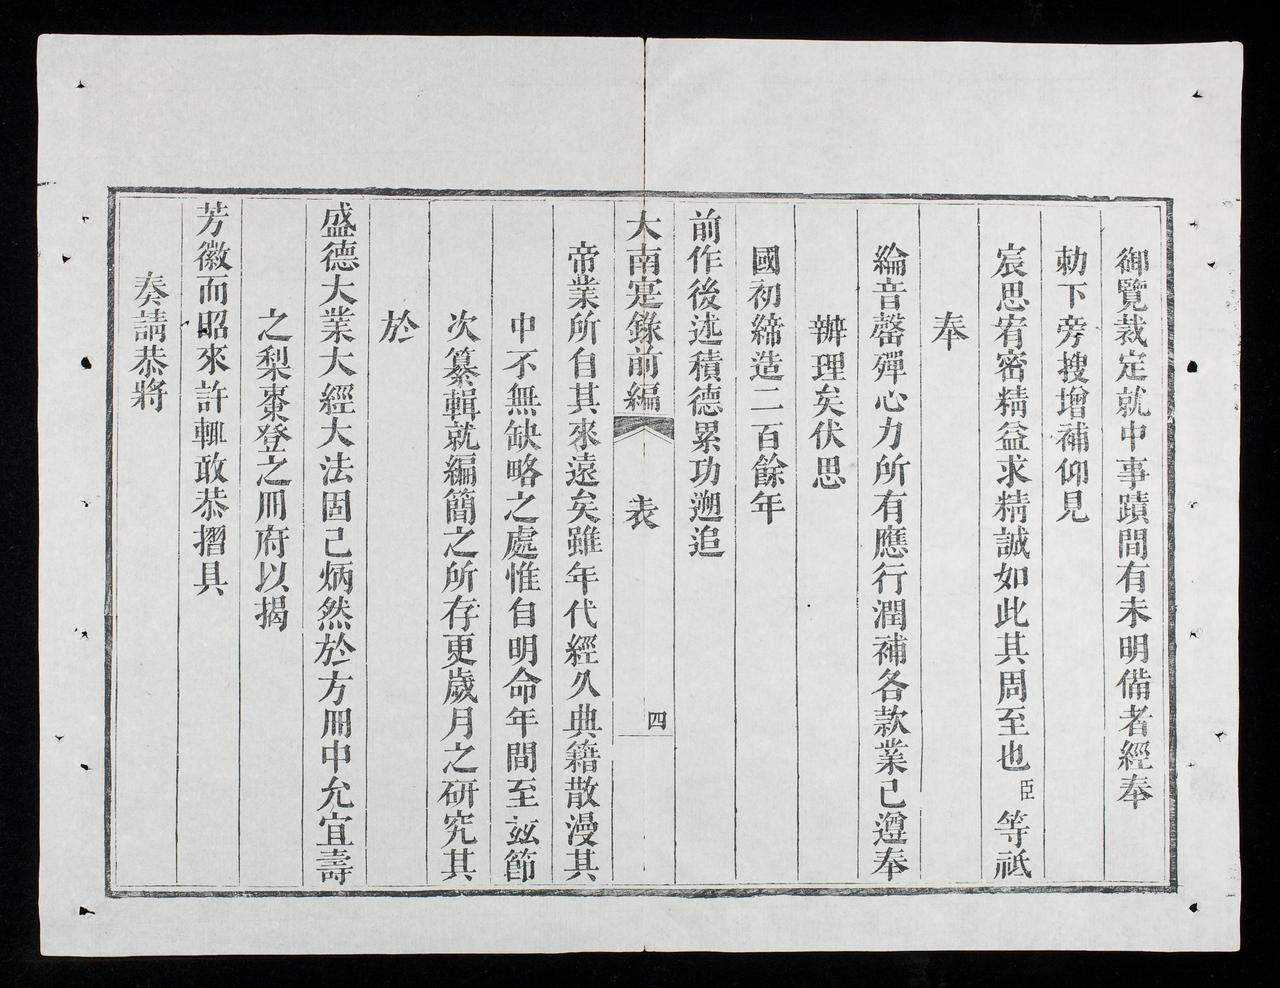 御覽裁定就中事蹟間有未明備者經奉
勅下旁搜增補仰見
宸思宥密精益求精誠如此其周至也臣等祗
奉
綸音罄殫心力所有應行潤補各款業已遵奉
辦理矣伏思
國初締造二百餘年
前作後述積德累功遡追
大南寔錄前編 表 四
帝業所自其來遠矣雖年代經久典籍散漫其
中不無缺略之處惟自明命年間至玆節
次纂輯就編簡之所存更歲月之研究其
於
盛德大業大經大法固已炳然於方冊中允宜壽
之梨棗登之冊府以揭
芳徽而昭來許輒敢恭摺具
奏請恭將